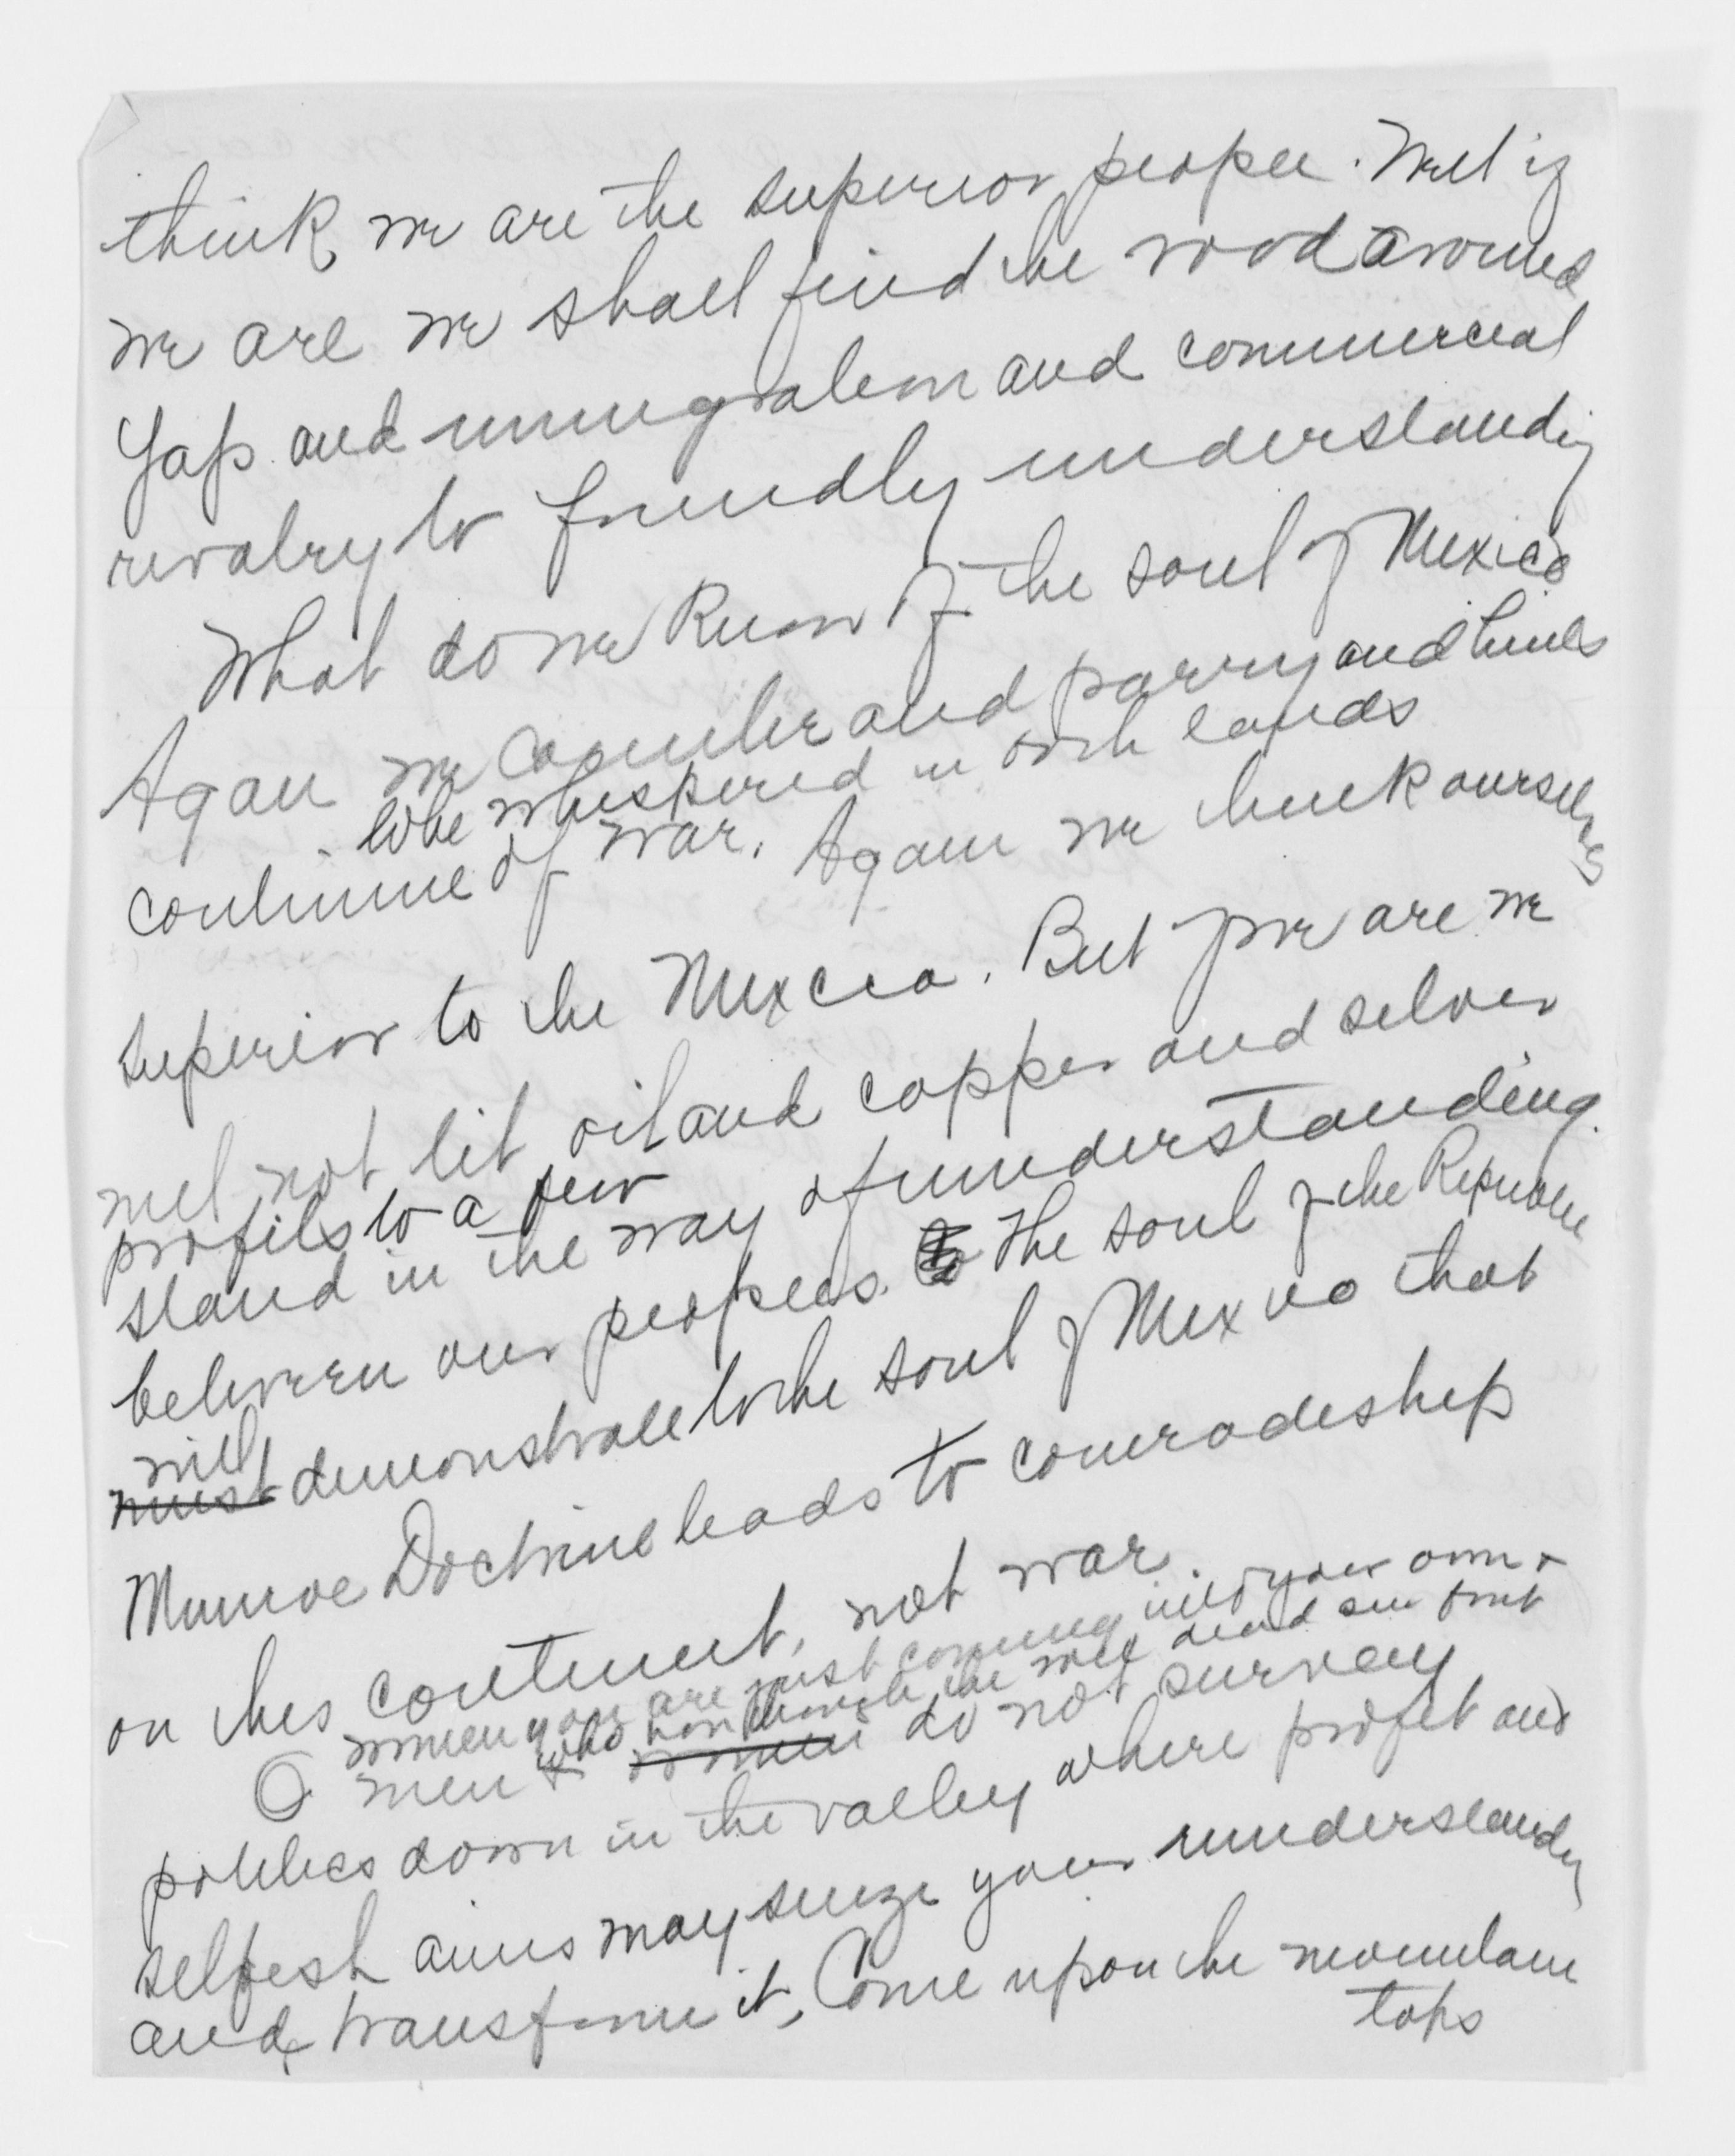 think we are the superior people. Well if
we are we shall find the road around
Yap and immigration and commercial
rivalry to friendly understanding
What do we know of the soul of Mexico
Again we counter and parry and hints
to be whispered in both lands
continue of war. Again we think ourselves
superior to the Mexico. But if we are we
will not let oil and copper and silver
profits to a few
stand in the way of understanding
between our peoples. The soul of the Republic
will
must demonstrate to the soul of Mexico that
Monroe Doctrine leads to comradeship
on this continent, not war.
women you are just coming into your own &
who won through the
O men & women do not survey
politics down in the valley where profit and
selfish aims may seize your understanding
and transform it, Come upon the mountain
tops